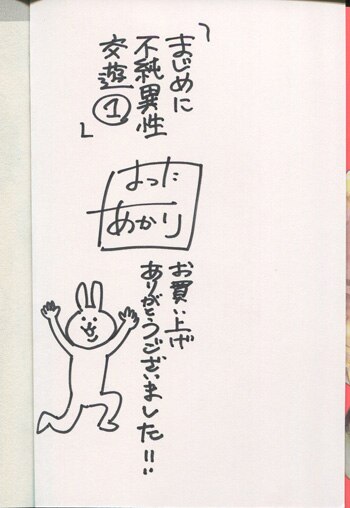 「まじめに
不純異性
交遊①」
よつた
あかり
お買い上げ
ありがとうございました!!